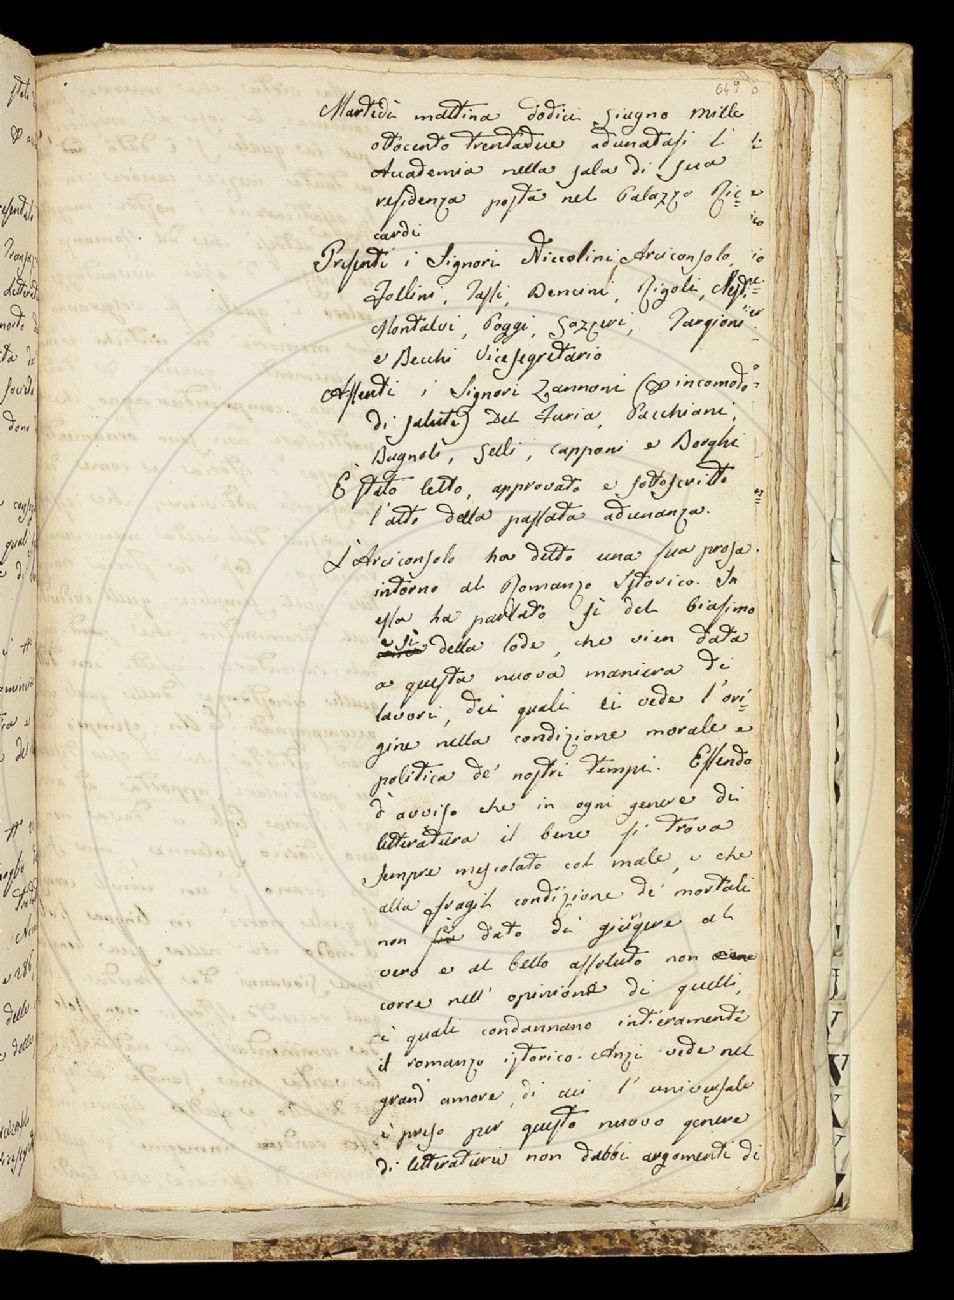 649
Martedì mattina dodici Giugno mille
ottocento trentadue adunatasi l'
Accademia nella sala di sua
residenza posta nel Palazzo Ric=
cardi
Presenti i Signori Niccolini Arciconsolo,
Follini, Tassi, Bencini, Rigoli, Nesti,
Montalvi, Poggi, Gazzeri, Targioni
e Becchi Vicesegretario
Assenti i Signori Zannoni (p incomodo
di salute) Del Furia, Pacchiani,
Bagnoli, Gelli, Capponi e Borghi
È stato letto, approvato e sottoscritto
l'atto della passata adunanza.
L'Arciconsolo ha detto una sua prosa
intorno al Romanzo Istorico. In
essa ha parlato sì del biasimo
e sì della lode, che vien data
a questa nuova maniera di
lavori, dei quali ei vede l'ori=
gine nella condizione morale e
politica de' nostri tempi. Essendo
d'avviso che in ogni genere di
letteratura il bene si trova
sempre mescolato col male, e che
alla fragil condizione de' mortali
non dato di giugnere al
vero e al bello assoluto non
corre nell' opinione di quelli,
i quali condannano intieramente
il romanzo istorico. Anzi vede nel
grand amore, di cui l' universale
è preso per questo nuovo genere
di letteratura non dubbi argomenti di